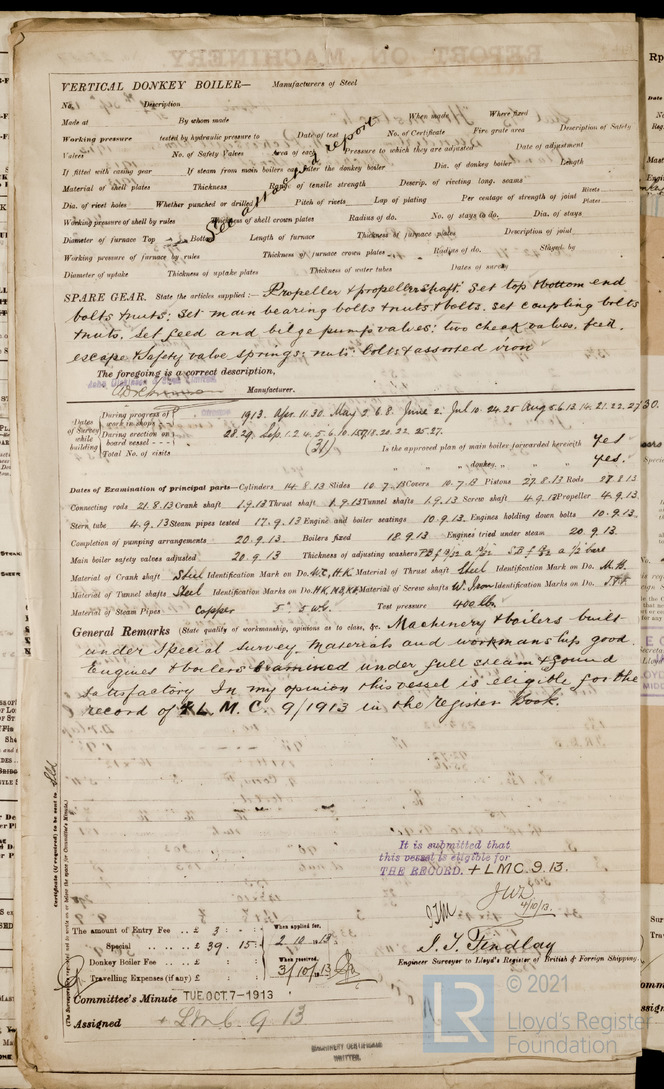 VERTICAL DONKEY BOILER— Manufacturers of Steel
No. Description
Made at By whom made When made Where fixed
Working pressure tested by hydraulic pressure to Date of test No. of Certificate Fire grate area Description of Safety
Valves No. of Safety Valves Area of each Pressure to which they are adjusted Date of adjustment
If fitted with casing gear If steam from main boilers can enter the donkey boiler Dia. of donkey boiler Length
Material of shell plates Thickness Range of tensile strength Descrip. of riveting long. seams
Dia. of rivet holes Whether punched or drilled Pitch of rivets Lap of plating Per centage of strength of joint Rivets Plates
Working pressure of shell by rules Thickness of shell crown plates Radius of do. No. of stays to do. Dia. of stays
Diameter of furnace Top Bottom Length of furnace Thickness of furnace plates Description of joint
Working pressure of furnace by rules Thickness of furnace crown plates Radius of do. Stayed by
Diameter of uptake Thickness of uptake plates Thickness of water tubes Dates of survey
See attached report
SPARE GEAR. State the articles supplied:— Propeller & propeller shaft. Set top & bottom end
bolts & nuts. Set main bearing bolts & nuts & bolts. Set coupling bolts
& nuts. Set feed and bilge pump valves: two check valves. feed.
escape & safety valve springs: nuts. bolts & assorted iron
The foregoing is a correct description,
Manufacturer.
Dates of Survey while building
During progress of work in shops - - 1913. Apr. 11. 30. May 2. 6. 8. June 2. Jul 10. 24. 25 Aug 5. 6. 13. 14. 21. 22. 27 30.
During erection on board vessel - - - 28. 29. Sep. 1. 2. 4. 5. 6. 10. 15. 17. 18. 20. 22. 25. 27.
Total No. of visits (31) Is the approved plan of main boiler forwarded herewith Yes
" " " donkey " " Yes.
Dates of Examination of principal parts—Cylinders 14. 8. 13 Slides 10. 7. 13 Covers 10. 7. 13 Pistons 27. 8. 13 Rods 27. 8. 13
Connecting rods 21. 8. 13 Crank shaft 1. 9. 13 Thrust shaft 1. 9. 13 Tunnel shafts 1. 9. 13 Screw shaft 4. 9. 13 Propeller 4. 9. 13
Stern tube 4. 9. 13 Steam pipes tested 17. 9. 13 Engine and boiler seatings 10. 9. 13. Engines holding down bolts 10. 9. 13.
Completion of pumping arrangements 20. 9. 13. Boilers fixed 18. 9. 13 Engines tried under steam 20. 9. 13.
Main boiler safety valves adjusted 20. 9. 13 Thickness of adjusting washers
Material of Crank shaft Steel Identification Mark on Do. W.C, H.K Material of Thrust shaft Steel Identification Mark on Do. M. H.
Material of Tunnel shafts Steel Identification Marks on Do. Material of Screw shafts W. Iron Identification Marks on Do.
Material of Steam Pipes Copper Test pressure 400 lbs.
General Remarks (State quality of workmanship, opinions as to class, &c. Machinery & boilers built
under Special Survey. Materials and workmanship good
Engines & boilers examined under full steam & found
satisfactory In my opinion this vessel is eligible for the
record of + L. M. C. 9/1913 in the register Book.
It is submitted that
this vessel is eligible for
THE RECORD. + LMC. 9. 13.
4/10/13.
The amount of Entry Fee .. £ 3 : : When applied for,
Special .. .. .. £ 39 . 15 : 2. 10. 13
Donkey Boiler Fee .. .. £ : : When received,
Travelling Expenses (if any) £ : : 3/10/13
J. T. Findlay
Engineer Surveyor to Lloyd's Register of British & Foreign Shipping.
Committee's Minute TUE. OCT. 7 - 1913
Assigned + L.M.C. 9. 13
MACHINERY CERTIFICATE
WRITTEN.
Certificate (if required) to be sent to
(The Surveyors are requested not to write on or below the space for Committee's Minute.)
LR
© 2021
Lloyd's Register
Foundation